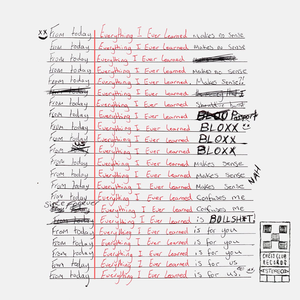 From today Everything I Ever Learned makes no sense
From today Everything I Ever Learned Makes no sense
From today Everything I Ever Learned
From today Everything I Ever Learned makes no sense
From today Everything I Ever Learned Makes Sense?!
Everything I Ever Learned
From today Everything I Ever Learned
From today Everything I Ever Learned
From today Everything I Ever Learned BLOXX
From today Everything I Ever Learned BLOXX
From Everything I Ever Learned BLOXX
From today Everything I Ever Learned makes sense
From today Everything I Ever Learned makes sense
From today Everything I Ever Learned Makes Sense
From today Everything I Ever Learned Confuses me
From Everything I Ever Learned Confuses me
Everything I Ever Learned is BOLLSH*T
From today Everything I Ever Learned is for you
From today Everything I Ever Learned is for you
From today Everything I Ever Learned is for you
From today Everything I Ever Learned is for us!
CHESS CLUB
RECORDS